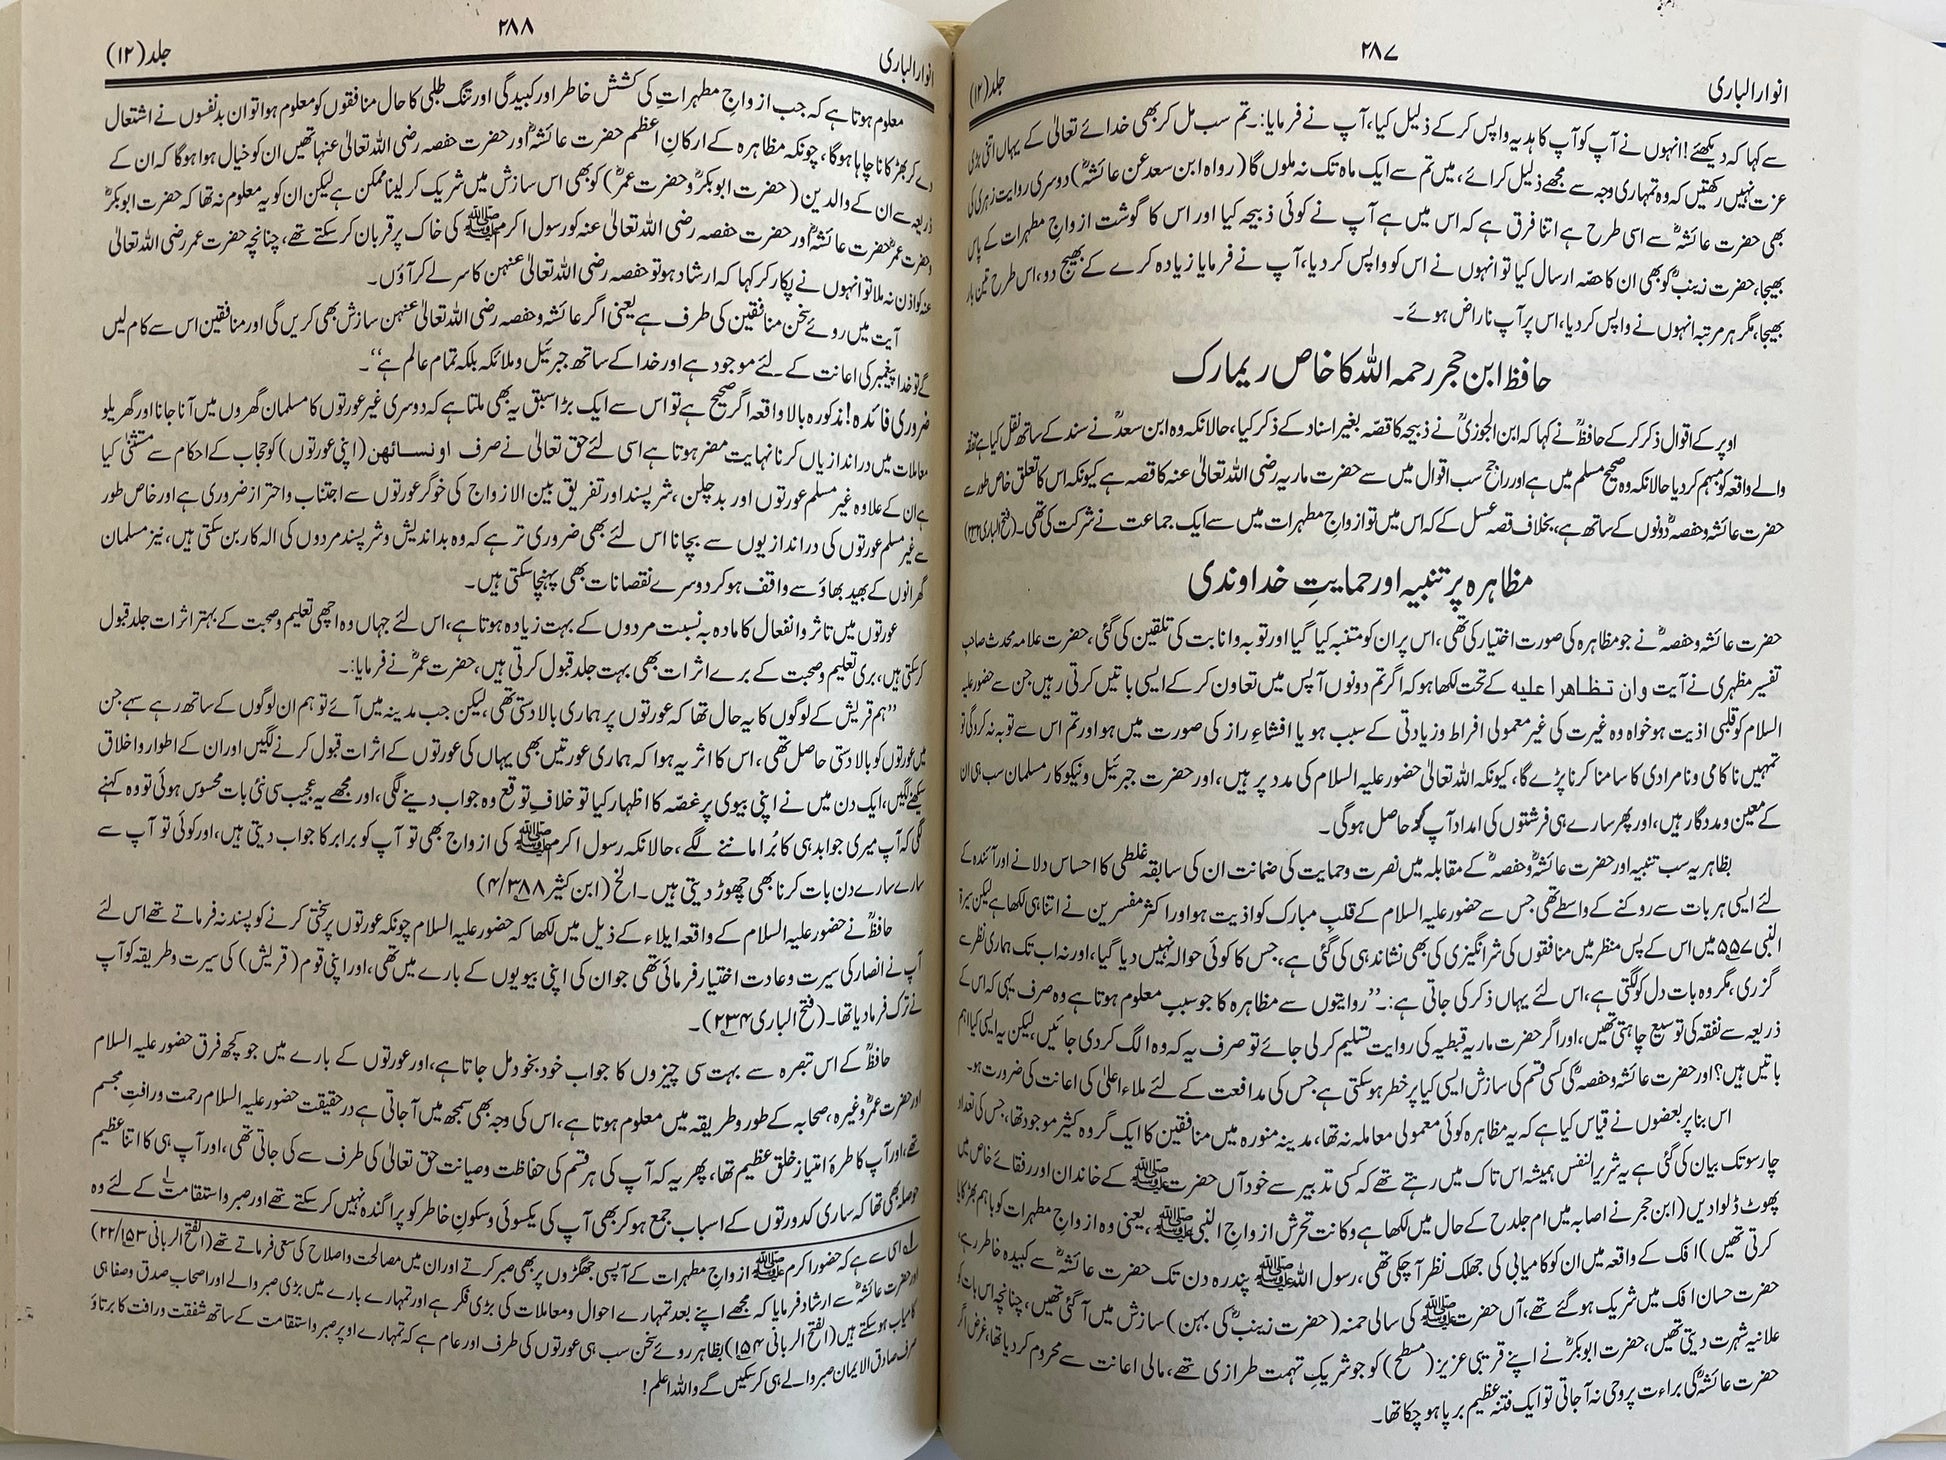 ۲۸۷
انوار الباری
جلد (۱۲)
سے کہا کہ دیکھئے! انہوں نے آپ کو آپ کا ہدیہ واپس کر کے ذلیل کیا، آپ نے فرمایا:۔ تم سب مل کر بھی خدائے تعالیٰ کے یہاں اتنی بڑی
عزت نہیں رکھتیں کہ وہ تمہاری وجہ سے مجھے ذلیل کرائے، میں تم سے ایک ماہ تک نہ ملوں گا (رواہ ابن سعد عن عائشہؓ) دوسری روایت زہری کی
بھی حضرت عائشہؓ سے اسی طرح ہے اتنا فرق ہے کہ اس میں ہے آپ نے کوئی ذبیحہ کیا اور اس کا گوشت ازواجِ مطہرات کے پاس
بھیجا، حضرت زینبؓ کو بھی ان کا حصّہ ارسال کیا تو انہوں نے اس کو واپس کر دیا، آپ نے فرمایا زیادہ کر کے بھیج دو، اس طرح تین بار
بھیجا، مگر ہر مرتبہ انہوں نے واپس کر دیا، اس پر آپ ناراض ہوئے۔
حافظ ابن حجر رحمہ اللہ کا خاص ریمارک
اوپر کے اقوال ذکر کر کے حافظؒ نے کہا کہ ابن الجوزیؒ نے ذبیحہ کا قصّہ بغیر اسناد کے ذکر کیا، حالانکہ وہ ابن سعدؒ نے سند کے ساتھ نقل کیا ہے نفقہ
والے واقعہ کو مبہم کر دیا حالانکہ وہ صحیح مسلم میں ہے اور راجح سب اقوال میں سے حضرت ماریہ رضی اللہ تعالیٰ عنہ کا قصہ ہے کیونکہ اس کا تعلق خاص طور سے
حضرت عائشہ و حفصہؓ دونوں کے ساتھ ہے، بخلاف قصہ عسل کے کہ اس میں تو ازواجِ مطہرات میں سے ایک جماعت نے شرکت کی تھی۔ (فتح الباری
مظاہرہ پر تنبیہ اور حمایتِ خداوندی
حضرت عائشہ و حفصہؓ نے جو مظاہرہ کی صورت اختیار کی تھی، اس پر ان کو متنبہ کیا گیا اور توبہ و انابت کی تلقین کی گئی، حضرت علامہ محدث صاحب
تفسیر مظہری نے آیت وان تظاھرا علیہ کے تحت لکھا ہو کہ اگر تم دونوں آپس میں تعاون کر کے ایسی باتیں کرتی رہیں جن سے حضور علیہ
السلام کو قلبی اذیت ہو خواہ وہ غیرت کی غیر معمولی افراط و زیادتی کے سبب ہو یا افشاءِ راز کی صورت میں ہو اور تم اس سے توبہ نہ کرو گی تو
تمہیں ناکامی و نامرادی کا سامنا کرنا پڑے گا، کیونکہ اللہ تعالیٰ حضور علیہ السلام کی مدد پر ہیں، اور حضرت جبرئیل و نیکو کار مسلمان سب ہی ان
کے معین و مددگار ہیں، اور پھر سارے ہی فرشتوں کی امداد آپ کو حاصل ہو گی۔
بظاہر یہ سب تنبیہ اور حضرت عائشہؓ و حفصہؓ کے مقابلہ میں نصرت و حمایت کی ضمانت ان کی سابقہ غلطی کا احساس دلانے اور آئندہ کے
لئے ایسی ہر بات سے روکنے کے واسطے تھی جس سے حضور علیہ السلام کے قلبِ مبارک کو اذیت ہو اور اکثر مفسرین نے اتنا ہی لکھا ہے لیکن سیرۃ
النبی ۵۵۷ میں اس کے پس منظر میں منافقوں کی شر انگیزی کی بھی نشاندہی کی گئی ہے، جس کا کوئی حوالہ نہیں دیا گیا، اور نہ اب تک ہماری نظر سے
گزری، مگر وہ بات دل کو لگتی ہے، اس لئے یہاں ذکر کی جاتی ہے:۔ ”روایتوں سے مظاہرہ کا جو سبب معلوم ہوتا ہے وہ صرف یہی کہ اس کے
ذریعہ سے نفقہ کی توسیع چاہتی تھیں، اور اگر حضرت ماریہ قبطیہ کی روایت تسلیم کر لی جائے تو صرف یہ کہ وہ الگ کر دی جائیں، لیکن یہ ایسی کیا اہم
باتیں ہیں؟ اور حضرت عائشہ و حفصہؓ کی کسی قسم کی سازش ایسی کیا پر خطر ہو سکتی ہے جس کی مدافعت کے لئے ملاء اعلیٰ کی اعانت کی ضرورت ہو۔
اس بنا پر بعضوں نے قیاس کیا ہے کہ یہ مظاہرہ کوئی معمولی معاملہ نہ تھا، مدینہ منورہ میں منافقین کا ایک گروہ کثیر موجود تھا، جس کی تعداد
چار سو تک بیان کی گئی ہے یہ شریر النفس ہمیشہ اس تاک میں رہتے تھے کہ کسی تدبیر سے خود آں حضرت ﷺ کے خاندان اور رفقائے خاص میں
پھوٹ ڈلوا دیں (ابن حجر نے اصابہ میں ام جلدح کے حال میں لکھا ہے وکانت تحرش ازواج النبی ﷺ، یعنی وہ ازواجِ مطہرات کو باہم بھڑکایا
کرتی تھیں) افک کے واقعہ میں ان کو کامیابی کی جھلک نظر آ چکی تھی، رسول اللہ ﷺ پندرہ دن تک حضرت عائشہؓ سے کبیدہ خاطر رہے،
حضرت حسان افک میں شریک ہو گئے تھے، آں حضرت ﷺ کی سالی حمنہ (حضرت زینبؓ کی بہن) سازش میں آ گئی تھیں، چنانچہ اس بات کو
علانیہ شہرت دیتی تھیں، حضرت ابوبکرؓ نے اپنے قریبی عزیز (مسطح) کو جو شریکِ تہمت طرازی تھے، مالی اعانت سے محروم کر دیا تھا، غرض اگر
حضرت عائشہؓ کی براءت پر وحی نہ آ جاتی تو ایک فتنہ عظیم برپا ہو چکا تھا۔
۲۸۸
انوار الباری
جلد (۱۲)
معلوم ہوتا ہے کہ جب ازواجِ مطہراتِ کی کشش خاطر اور کبیدگی اور تنگ طلبی کا حال منافقوں کو معلوم ہوا تو ان بدنفسوں نے اشتعال
دے کر بھڑکانا چاہا ہو گا، چونکہ مظاہرہ کے ارکانِ اعظم حضرت عائشہؓ اور حضرت حفصہ رضی اللہ تعالیٰ عنہا تھیں ان کو خیال ہوا ہو گا کہ ان کے
ذریعہ سے ان کے والدین (حضرت ابوبکرؓ و حضرت عمرؓ) کو بھی اس سازش میں شریک کر لینا ممکن ہے لیکن ان کو یہ معلوم نہ تھا کہ حضرت ابوبکرؓ
و حضرت عمرؓ حضرت عائشہؓ اور حضرت حفصہ رضی اللہ تعالیٰ عنہ کو رسول اکرم ﷺ کی خاک پر قربان کر سکتے تھے، چنانچہ حضرت عمر رضی اللہ تعالیٰ
عنہ کو اذن نہ ملا تو انہوں نے پکار کر کہا کہ ارشاد ہو تو حفصہ رضی اللہ تعالیٰ عنہن کا سر لے کر آؤں۔
آیت میں روئے سخن منافقین کی طرف ہے یعنی اگر عائشہ و حفصہ رضی اللہ تعالیٰ عنہن سازش بھی کریں گی اور منافقین اس سے کام لیں
گے تو خدا پیغمبر کی اعانت کے لئے موجود ہے اور خدا کے ساتھ جبرئیل و ملائکہ بلکہ تمام عالم ہے“۔
ضروری فائدہ! مذکورہ بالا واقعہ اگر صحیح ہے تو اس سے ایک بڑا سبق یہ بھی ملتا ہے کہ دوسری غیر عورتوں کا مسلمان گھروں میں آنا جانا اور گھریلو
معاملات میں دراندازیاں کرنا نہایت مضر ہوتا ہے اسی لئے حق تعالیٰ نے صرف اونسائھن (اپنی عورتوں) کو حجاب کے احکام سے مستثنیٰ کیا
ہے ان کے علاوہ غیر مسلم عورتوں اور بدچلن، شرپسند اور تفریق بین الازواج کی خوگر عورتوں سے اجتناب و احتراز ضروری ہے اور خاص طور
سے غیر مسلم عورتوں کی دراندازیوں سے بچانا اس لئے بھی ضروری تر ہے کہ وہ بداندیش و شرپسند مردوں کی الہ کار بن سکتی ہیں، نیز مسلمان
گھرانوں کے بھید بھاؤ سے واقف ہو کر دوسرے نقصانات بھی پہنچا سکتی ہیں۔
عورتوں میں تاثر و انفعال کا مادہ بہ نسبت مردوں کے بہت زیادہ ہوتا ہے، اس لئے جہاں وہ اچھی تعلیم و صحبت کے بہتر اثرات جلد قبول
کر سکتی ہیں، بری تعلیم و صحبت کے برے اثرات بھی بہت جلد قبول کرتی ہیں، حضرت عمرؓ نے فرمایا:۔
”ہم قریش کے لوگوں کا یہ حال تھا کہ عورتوں پر ہماری بالا دستی تھی، لیکن جب مدینہ میں آئے تو ہم ان لوگوں کے ساتھ رہے سہے جن
میں عورتوں کو بالا دستی حاصل تھی، اس کا اثر یہ ہوا کہ ہماری عورتیں بھی یہاں کی عورتوں کے اثرات قبول کرنے لگیں اور ان کے اطوار و اخلاق
سیکھنے لگیں، ایک دن میں نے اپنی بیوی پر غصّہ کا اظہار کیا تو خلافِ توقع وہ جواب دینے لگی، اور مجھے یہ عجیب سی نئی بات محسوس ہوئی تو وہ کہنے
لگی کہ آپ میری جوابدہی کا بُرا ماننے لگے، حالانکہ رسول اکرم ﷺ کی ازواج بھی تو آپ کو برابر کا جواب دیتی ہیں، اور کوئی تو آپ سے
سارے سارے دن بات کرنا بھی چھوڑ دیتی ہیں۔ الخ (ابن کثیر ۳۸۸/۴)
حافظؒ نے حضور علیہ السلام کے واقعہ ایلاء کے ذیل میں لکھا کہ حضور علیہ السلام چونکہ عورتوں پر سختی کرنے کو پسند نہ فرماتے تھے اس لئے
آپ نے انصار کی سیرت و عادت اختیار فرمائی تھی جو ان کی اپنی بیویوں کے بارے میں تھی، اور اپنی قوم (قریش) کی سیرت و طریقہ کو آپ
نے ترک فرما دیا تھا۔ (فتح الباری ۲۳۴)۔
حافظؒ کے اس تبصرہ سے بہت سی چیزوں کا جواب خود بخود مل جاتا ہے، اور عورتوں کے بارے میں جو کچھ فرق حضور علیہ السلام
اور حضرت عمرؓ وغیرہ، صحابہ کے طور و طریقہ میں معلوم ہوتا ہے، اس کی وجہ بھی سمجھ میں آ جاتی ہے درحقیقت حضور علیہ السلام رحمت و رافتِ مجسم
تھے، اور آپ کا طرۂ امتیاز خلق عظیم تھا، پھر یہ کہ آپ کی ہر قسم کی حفاظت و صیانت حق تعالیٰ کی طرف سے کی جاتی تھی، اور آپ ہی کا اتنا عظیم
حوصلہ بھی تھا کہ ساری کدورتوں کے اسباب جمع ہو کر بھی آپ کی یکسوئی و سکونِ خاطر کو پراگندہ نہیں کر سکتے تھے اور صبر و استقامت ؂۱ کے لئے وہ
؂۱ اسی سے ہے کہ حضور اکرم ﷺ ازواجِ مطہرات کے آپسی جھگڑوں پر بھی صبر کرتے اور ان میں مصالحت و اصلاح کی سعی فرماتے تھے (الفتح الربانی ۱۵۳/۲۲)
اور حضرت عائشہؓ سے ارشاد فرمایا کہ مجھے اپنے بعد تمہارے احوال و معاملات کی بڑی فکر ہے اور تمہارے بارے میں بڑی صبر والے اور اصحاب صدق و صفا ہی
کامیاب ہو سکتے ہیں (الفتح الربانی ۱۵۴) بظاہر روئے سخن سب ہی عورتوں کی طرف اور عام ہے کہ تمہارے اوپر صبر و استقامت کے ساتھ شفقت و رافت کا برتاؤ
صرف صادق الایمان صبر والے ہی کر سکیں گے واللہ اعلم!